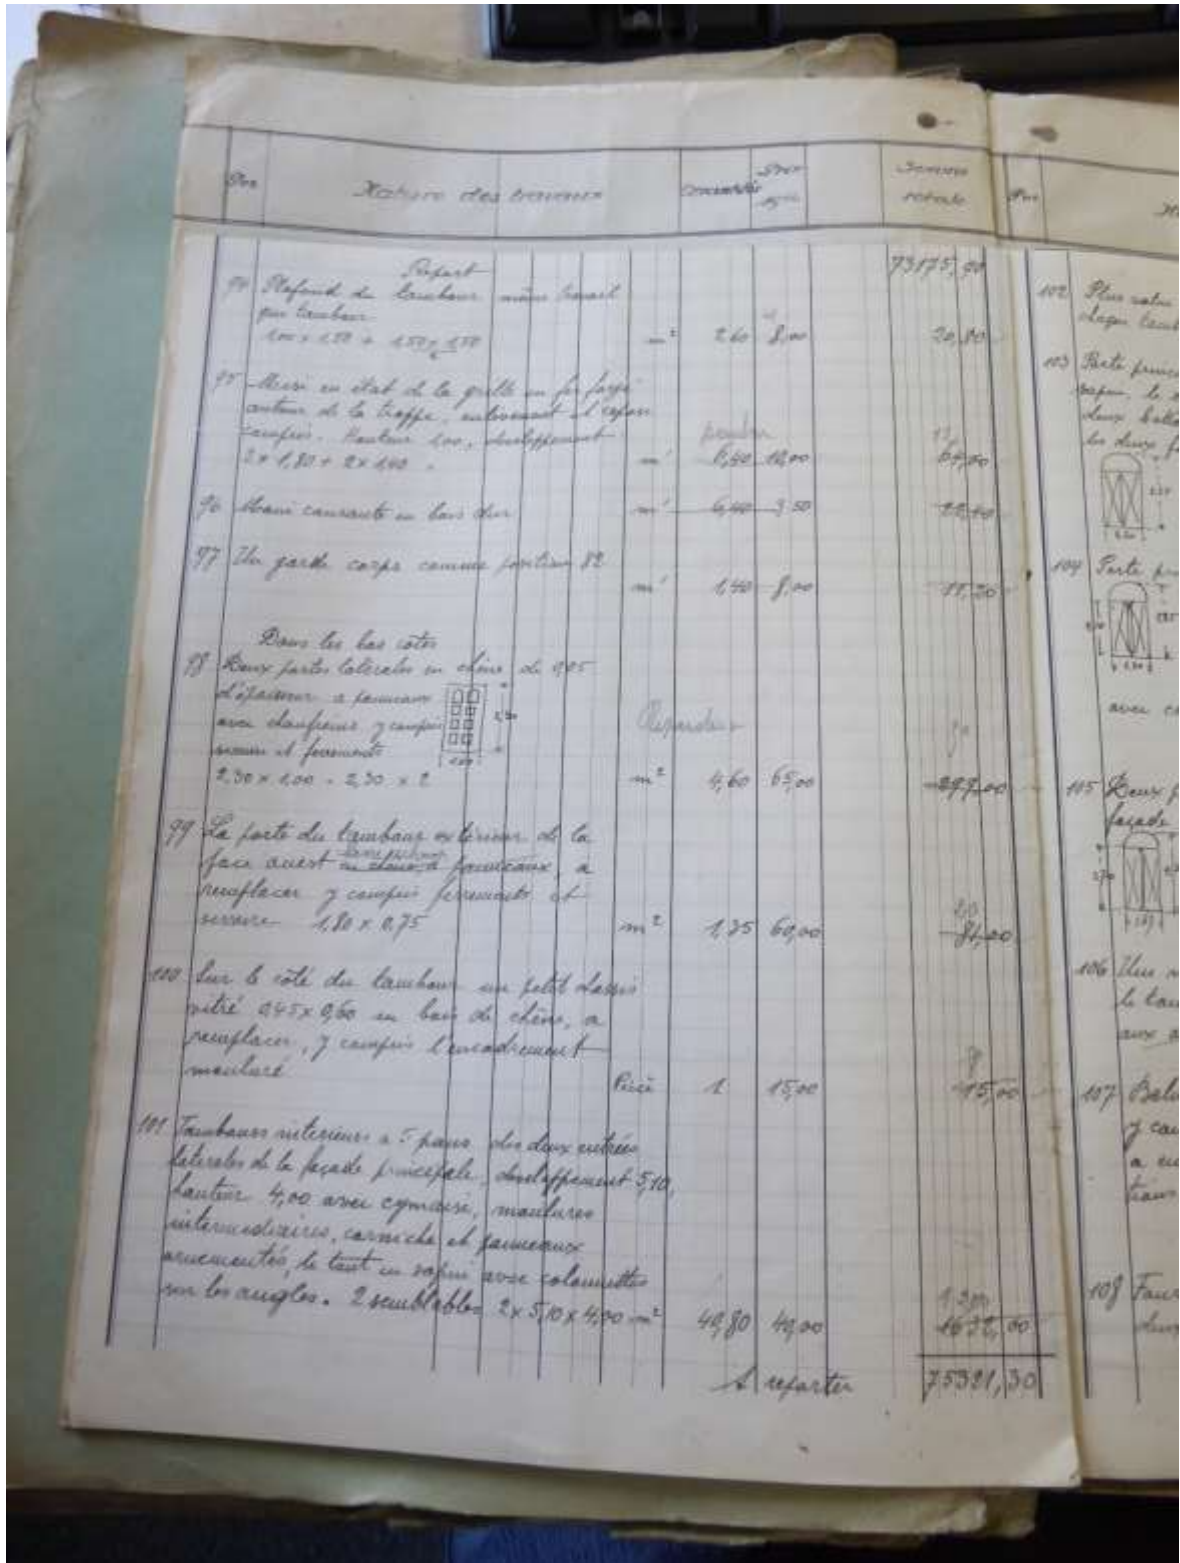 Pos Nature des travaux Prix Somme totale Pos
Report 73175,90
94 Plafond du tambour même travail
que tambour
m² 2,60 8,00 20,80
95 Mise en état de la grille en fer forgé
autour de la trappe, enlèvement et repose
compris. Hauteur 1,00, développement
2 x 1,80 + 2 x 1,40 m' 6,40 10,00 64,00
96 Main courante en bois dur m' 6,40 3,50 22,40
97 Un garde corps comme position 82
m' 1,40 8,00 11,20
Dans les bas côtés
98 Deux portes latérales en chêne de 0,05
d'épaisseur a panneaux
avec chanfreins y compris
serrure et ferrements
2,30 x 1,00 = 2,30 x 2 m² 4,60 65,00
99 La porte du tambour extérieur de la
face ouest en chêne, à panneaux, a
remplacer y compris ferrements et
serrure 1,80 x 0,75 m² 1,35 60,00 81,00
100 Sur le côté du tambour un petit chassis
vitré 0,45 x 0,60 en bois de chêne, a
remplacer, y compris l'encadrement
mouluré Pièce 1 15,00 15,00
101 Tambours intérieurs a 5 pans des deux entrées
laterales de la façade principale, développement 5,10,
hauteur 4,00 avec cymaise, moulures
intermédiaires, corniche et panneaux
ornementés, le tout en sapin avec colonnettes
sur les angles. 2 semblables 2 x 5,10 x 4,00 m² 40,80 40,00 1632,00
A reporter 75321,30
102 Plus value
103 Porte
deux
les deux
104 Porte
avec
105 Deux
façade
106 Une
le
aux
107
y
a
108
deux